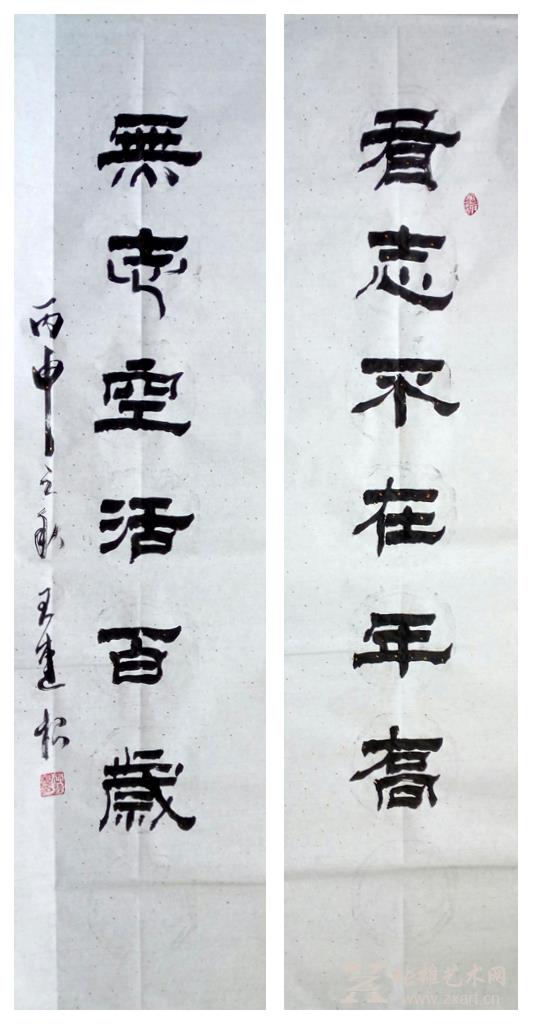 看志不在年高
無志空活百歲
丙申之秋 王建松
雄艺术网
www.zxart.cn